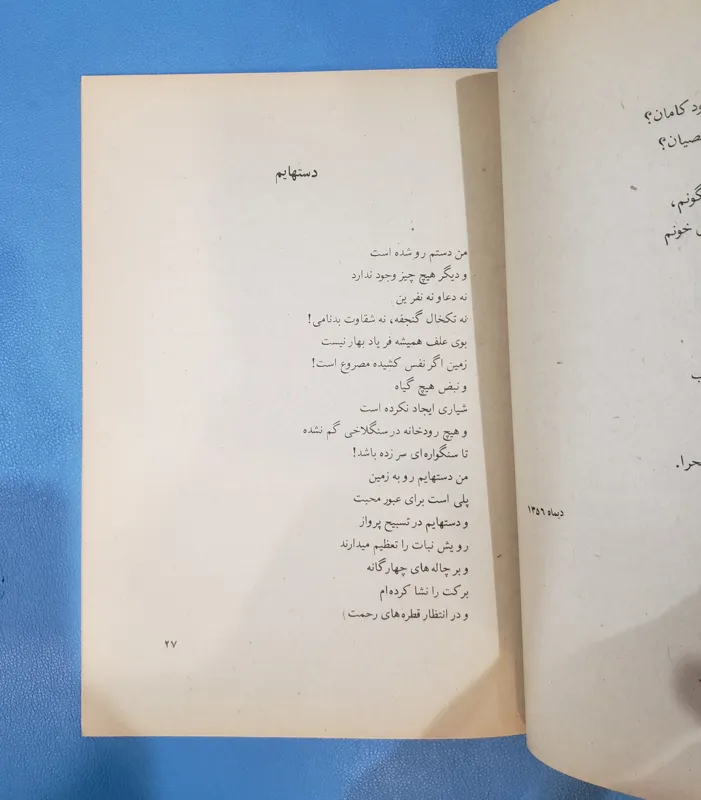 دستهایم
من دستم رو شده است
و دیگر هیچ چیز وجود ندارد
نه دعا و نه نفرین
نه تکخال گنجفه، نه شقاوت بدنامی!
بوی علف همیشه فریاد بهار نیست
زمین اگر نفس کشیده مصروع است!
و نبض هیچ گیاه
شیاری ایجاد نکرده است
و هیچ رودخانه در سنگلاخی گم نشده
تا سنگواره‌ای سر زده باشد!
من دستهایم رو به زمین
پلی است برای عبور محبت
و دستهایم در تسبیح پرواز
رویش نبات را تعظیم میدارند
و بر چاله‌های چهارگانه
برکت را نشا کرده‌ام
و در انتظار قطره‌های رحمت)
۲۷
کامان؟
صیان؟
گونم،
خونم
ب
حرا.
دیماه ۱۳۵۶